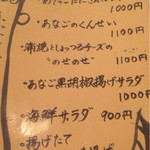 1000円
・あなごのくんせい
1100円
・蒲焼としょっつるチーズの
"のせのせ" 1100円
・あなご黒胡椒揚げサラダ
1000円
・海鮮サラダ 900円
・揚げたて